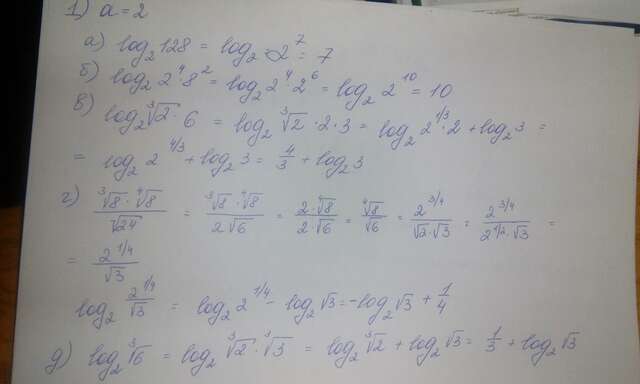 1) a = 2
а) log₂128 = log₂ 2⁷ = 7
б) log₂ 2⁴·8² = log₂ 2⁴·2⁶ = log₂ 2¹⁰ = 10
в) log₂ ∛2 · 6 = log₂ ∛2 · 2 · 3 = log₂ 2^(1/3) · 2 + log₂ 3 =
= log₂ 2^(4/3) + log₂ 3 = 4/3 + log₂ 3
г) (∛8 · ∜8)/√24 = (∛8 · ∜8)/(2√6) = (2 · ∜8)/(2 · √6) = ∜8/√6 = 2^(3/4)/(√2 · √3) = 2^(3/4)/(2^(1/2) · √3) =
= 2^(1/4)/√3
log₂ 2^(1/4)/√3 = log₂ 2^(1/4) - log₂ √3 = -log₂ √3 + 1/4
д) log₂ ∛6 = log₂ ∛2 · ∛3 = log₂ ∛2 + log₂ √3 = 1/3 + log₂ √3